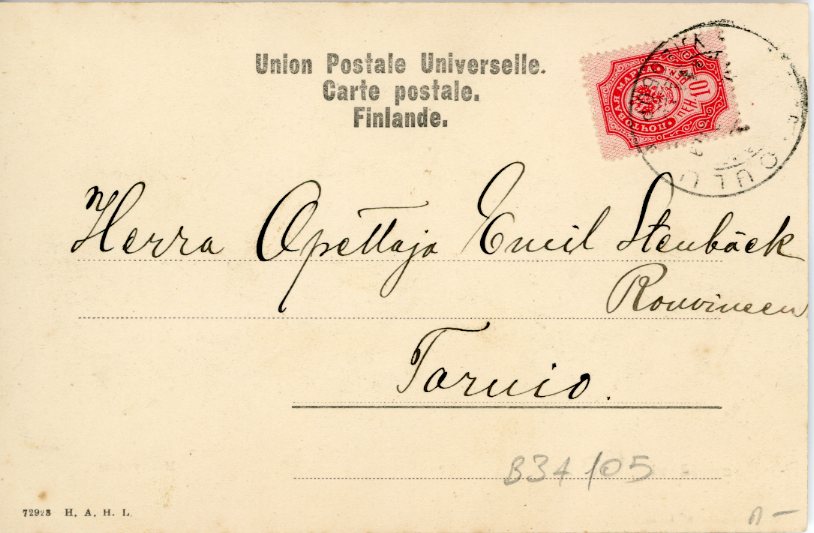 Union Postale Universelle.
Carte postale.
Finlande.
ПОЧТОВАЯ МАРКА
10 ПЕН
OULU
Herra Opettaja Emil Stenbäck
Rouvineen
Tornio.
B34/05
72928 H. A. H. L.